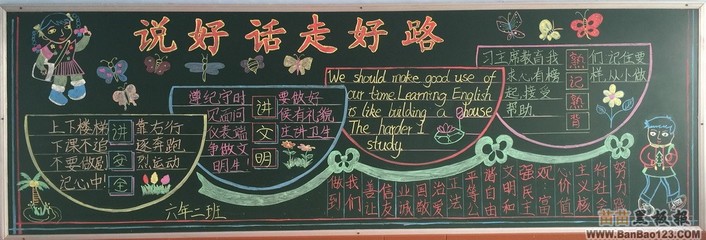 说好话走好路
上下楼梯讲靠右行
下课不追逐奔跑
不要做剧安烈运动
记心中!全
遵纪守时讲要做好
见面问候有礼貌
仪表端文庄讲卫生
争做文明
明生!
We should make good use of
our time. Learning English
is like building a house
The harder I
study.
习主席教育我熟们记住要
求心有榜记样,从小做
起,接受熟
帮助背
六年二班
努力践
行社会
主义核
心价值
观:富
强民主
文明和
谐自由
平等公
正法
治爱
国敬
业诚
信友
善让
我们
做到
www.BanBao123.com